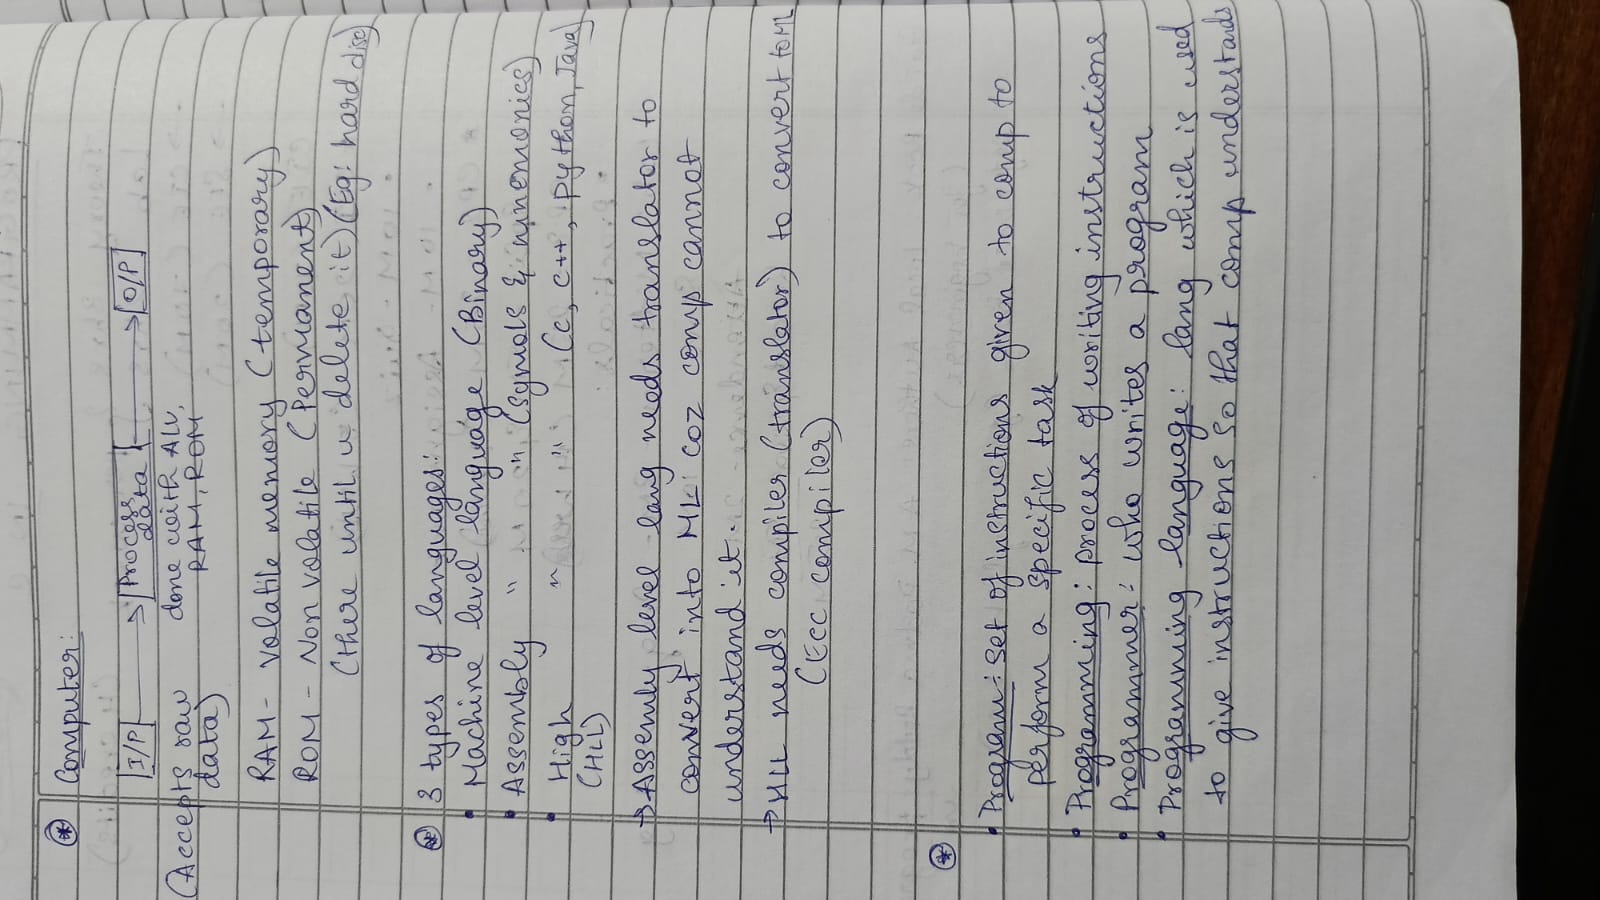 Computer:
I/P → Process data → O/P
(Accepts raw data)
done with ALU,
RAM, ROM
RAM - Volatile memory (temporary)
ROM - Non volatile (Permanent)
(there until u delete it) (Eg: hard disc)
3 types of languages:
• Machine level language (Binary)
• Assembly " " (symols & mnemonics)
• High " " (C, C++, python, Java)
(HLL)
→ Assemly level lang needs translator to
convert into ML coz comp cannot
understand it.
→ HLL needs compiler (translator) to convert to ML
(Ecc compiler)
• Program: set of instructions given to comp to
perform a specific task
• Programming: process of writing instructions
• Programmer: who writes a program
• Programming language: lang which is used
to give instructions so that comp understands